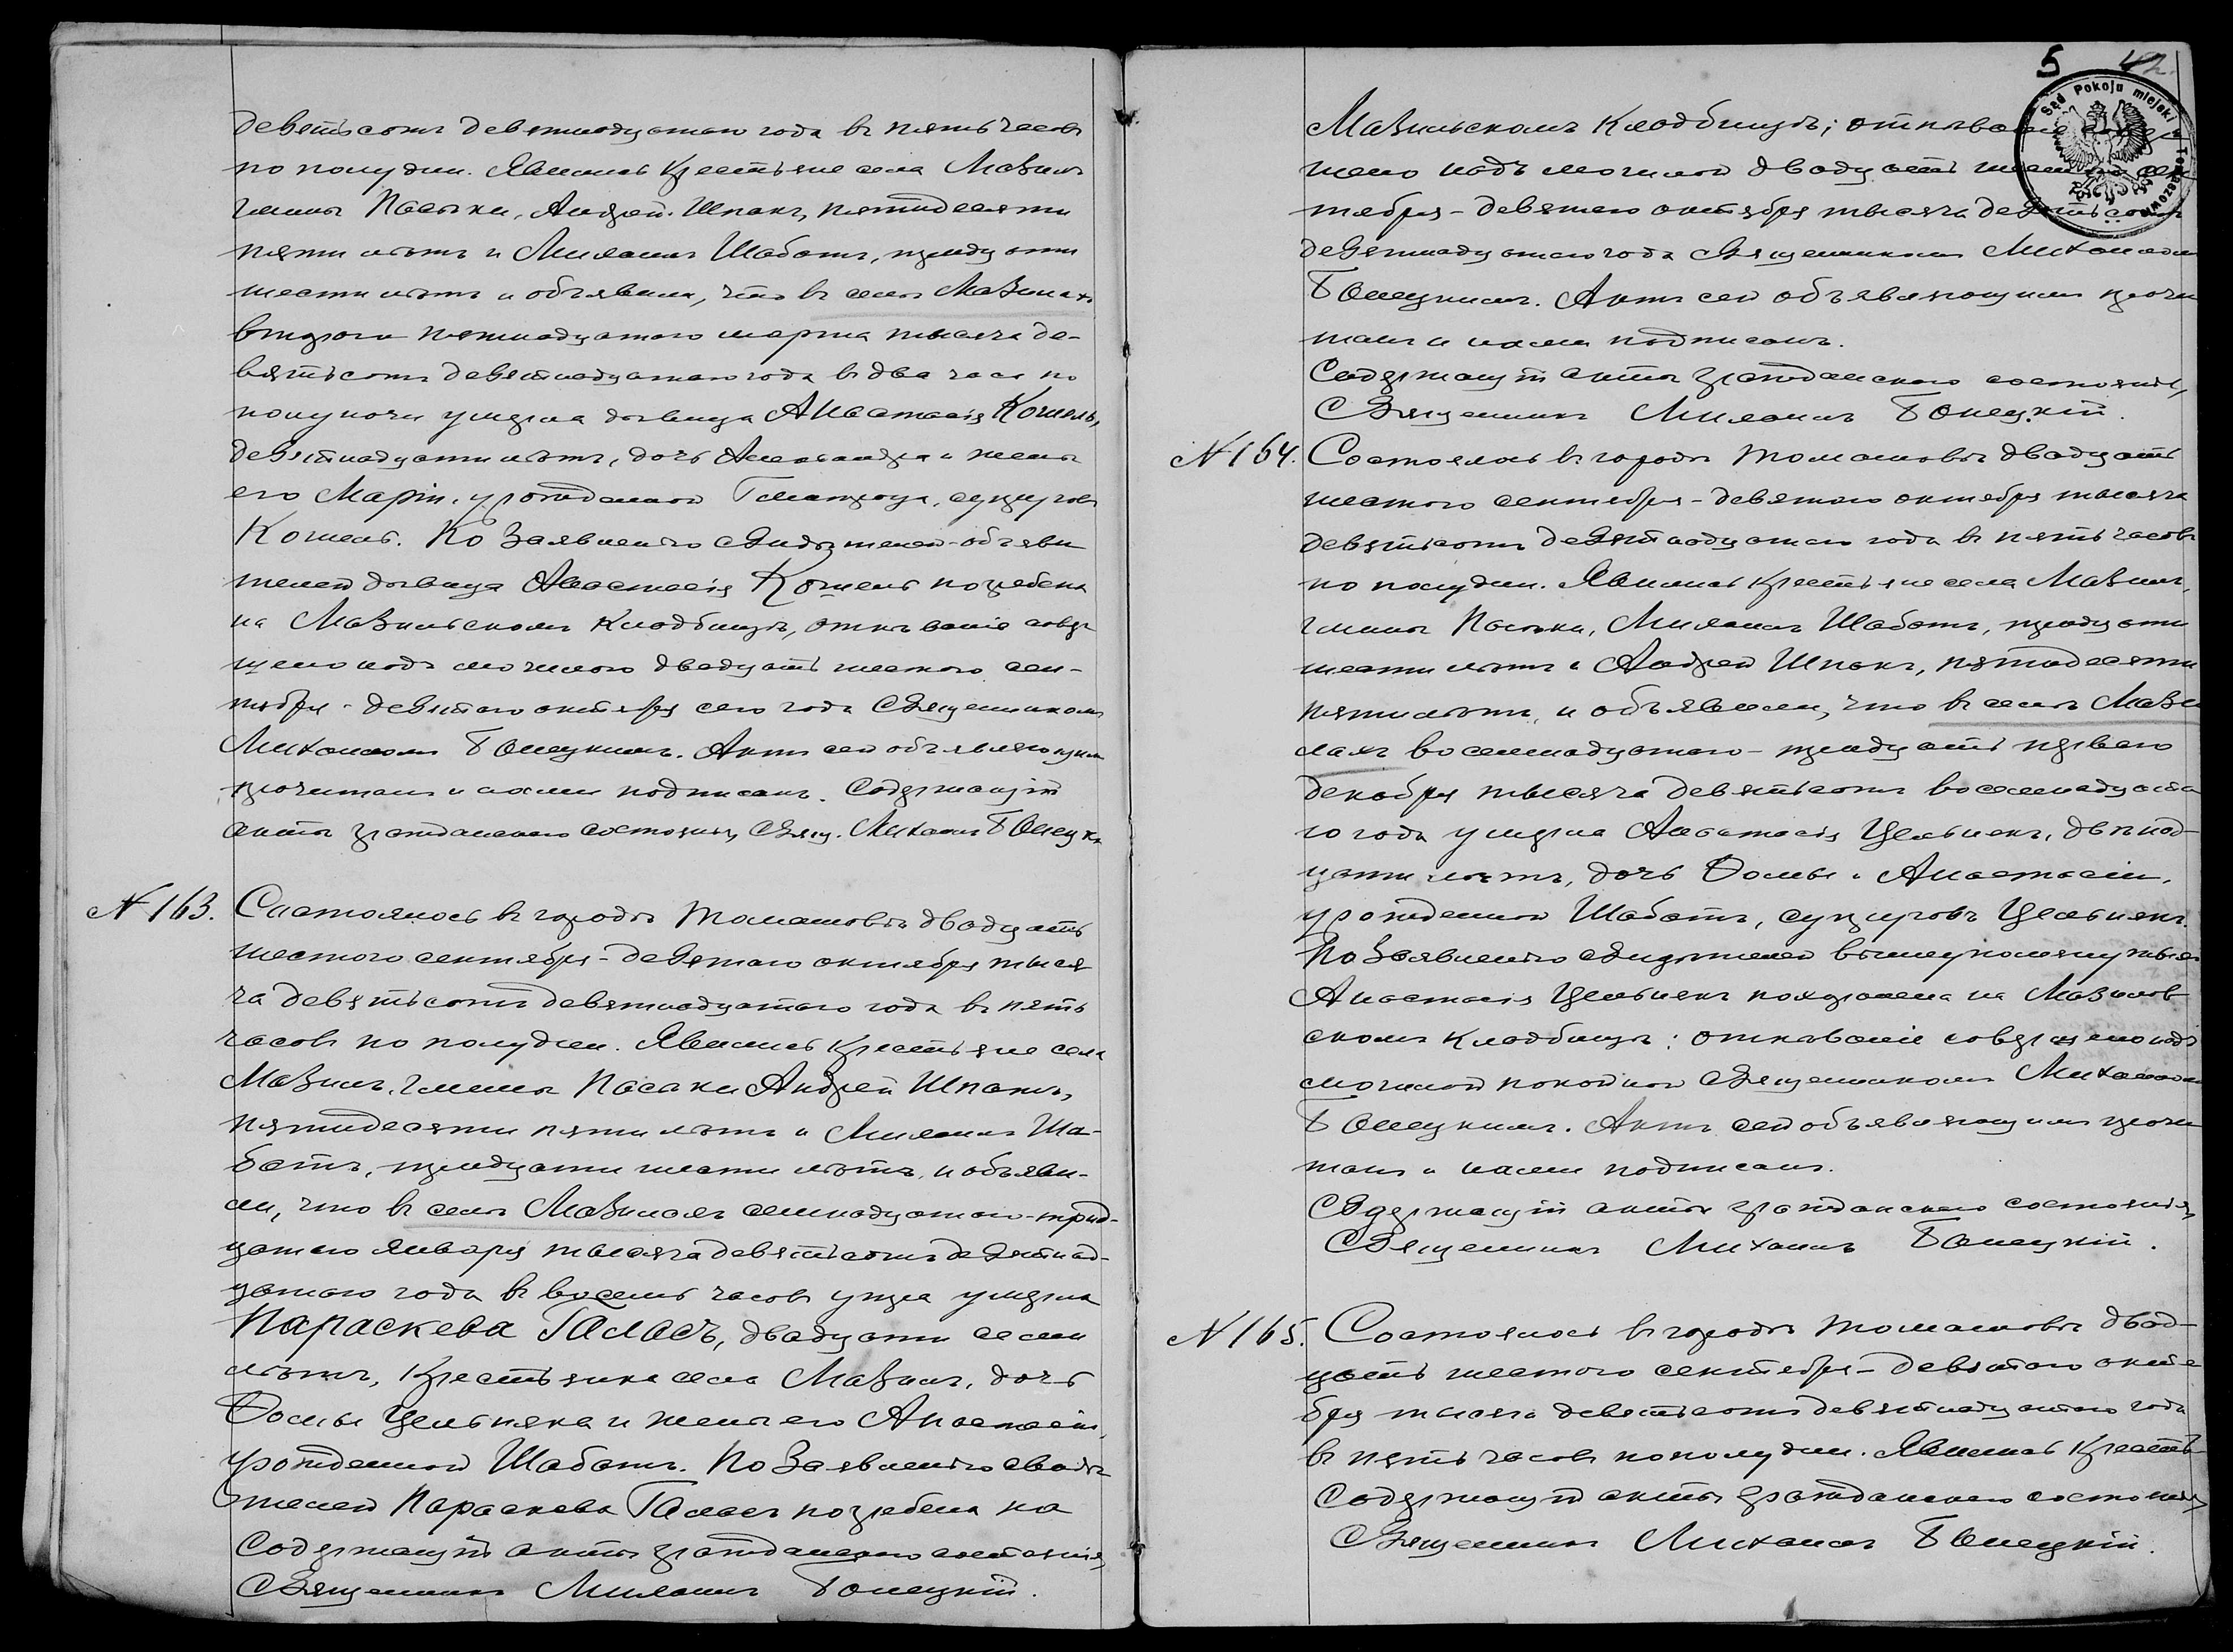 девятьсотъ девятнадцатаго года въ пять часовъ
по полудни. Явились крестьяне села Мазилъ
гмины Пасѣки, Андрей Шпакъ, пятидесяти
пяти лѣтъ и Михаилъ Шабатъ, тридцати
шести лѣтъ и объявили, что въ селѣ Мазилахъ
второго пятнадцатого марта тысяча де-
вятьсотъ девятнадцатаго года въ два часа по
полуночи умерла дѣвица Анастасія Кошель,
девятнадцати лѣтъ, дочь Александра и жены
его Маріи, урожденной, супруговъ
Кошель. По заявленію свидѣтелей-объяви
телей дѣвица Анастасія Кошель погребена
на Мазильскомъ кладбищѣ, отпѣваніе совер
шено надъ могилою двадцать шестого сен-
тября - девятаго октября сего года Священникомъ
Михаиломъ Бонецкимъ. Актъ сей объявляющимъ
прочитанъ и нами подписанъ. Содержащій
акты гражданскаго состоянія, Свящ. Михаилъ Бонецкі
N 163. Состоялось въ городѣ Томашовѣ двадцать
шестого сентября - девятаго октября тыся
ча девятьсотъ девятнадцатаго года въ пять
часовъ по полудни. Явились крестьяне села
Мазилъ, гмины Пасѣки Андрей Шпакъ,
пятидесяти пяти лѣтъ и Михаилъ Ша-
батъ, тридцати шести лѣтъ, и объяви-
ли, что въ селѣ Мазилахъ семнадцатаго - трид-
цатаго января тысяча девятьсотъ девятнад-
цатаго года въ восемь часовъ утра умерла
Параскева Галасъ, двадцати семи
лѣтъ, крестьянка села Мазилъ, дочь
Фомы Цельняка и жены его Анастасіи,
урожденной Шабатъ. По заявленію свидѣ
телей Параскева Галасъ погребена на
Содержащій акты гражданскаго состоянія,
Священникъ Михаилъ Бонецкій.
5 42.
Sąd Pokoju miejski w Tomaszowie
Мазильскомъ кладбищѣ; отпѣваніе совер
шено надъ могилой двадцать шестого сен
тября - девятаго октября тысяча девятьсотъ
девятнадцатаго года Священникомъ Михаиломъ
Бонецкимъ. Актъ сей объявляющимъ прочи
танъ и нами подписанъ.
Содержащій акты гражданскаго состоянія,
Священникъ Михаилъ Бонецкій.
N 164. Состоялось въ городѣ Томашовѣ двадцать
шестого сентября - девятаго октября тысяча
девятьсотъ девятнадцатаго года въ пять часовъ
по полудни. Явились крестьяне села Мазилъ,
гмины Пасѣки, Михаилъ Шабатъ, тридцати
шести лѣтъ и Андрей Шпакъ, пятидесяти
пяти лѣтъ, и объявили, что въ селѣ Мази
лахъ восемнадцатаго - тридцать перваго
декабря тысяча девятьсотъ восемнадцата
го года умерла Анастасія Цельнякъ, двѣнад-
цати лѣтъ, дочь Фомы и Анастасіи,
урожденной Шабатъ, супруговъ Цельнякъ.
По заявленію свидѣтелей вышеупомянутыхъ
Анастасія Цельнякъ похоронена на Мазилов
скомъ кладбищѣ; отпѣваніе совершено надъ
могилой покойной Священникомъ Михаиломъ
Бонецкимъ. Актъ сей объявляющимъ прочи
танъ и нами подписанъ.
Содержащій акты гражданскаго состоянія,
Священникъ Михаилъ Бонецкій.
N 165. Состоялось въ городѣ Томашовѣ двад-
цать шестого сентября - девятаго октя
бря тысяча девятьсотъ девятнадцатаго года
въ пять часовъ по полудни. Явились кресть-
Содержащій акты гражданскаго состоянія,
Священникъ Михаилъ Бонецкій.